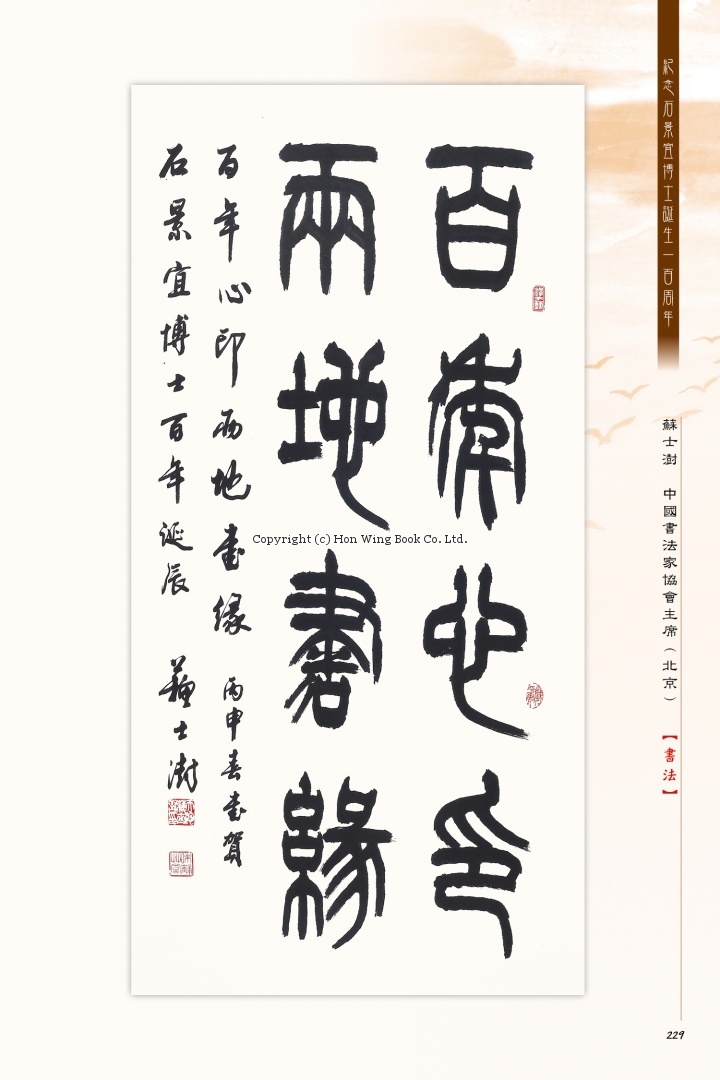 紀念石景宜博士誕生一百周年
蘇士澍 中國書法家協會主席（北京）
【書法】
百年心印
兩地書緣
百年心印两地书缘 丙申春书贺
石景宜博士百年诞辰 蘇士澍
Copyright (c) Hon Wing Book Co. Ltd.
229